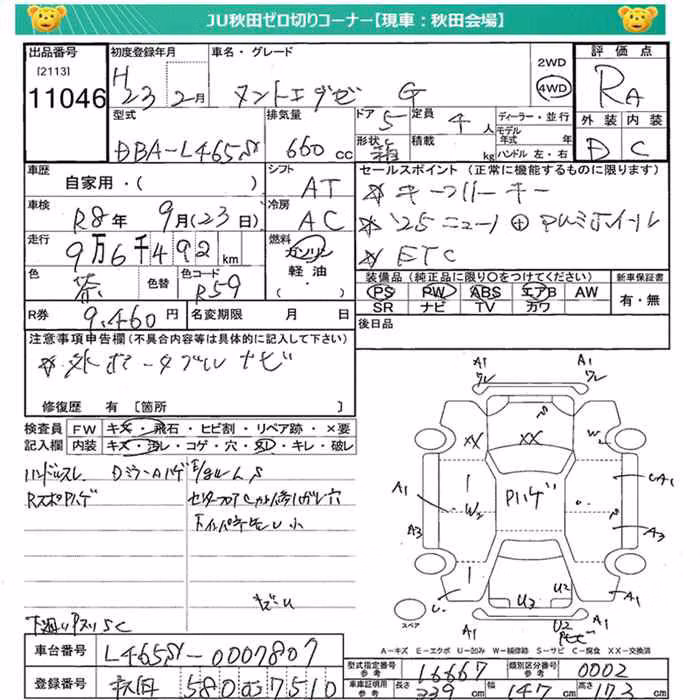 JU秋田ゼロ切りコーナー【現車：秋田会場】
出品番号
[2113]
11046
初度登録年月
H23年 2月
車名・グレード
タントエグゼ G
2WD
4WD
評価点
RA
外装 内装
D C
型式
DBA-L465S
排気量
660 cc
ドア 5
定員 4人
形状 箱
積載 kg
ディーラー・並行
モデル年式 年
ハンドル 左・右
車歴
自家用・( )
シフト
AT
車検
R8年 9月(23日)
冷房
AC
走行
9万6千492km
燃料
ガソリン
軽油・
( )
色
茶
色替
色コード
R59
R券
9,460円
名変期限 月 日
セールスポイント（正常に機能するものに限ります）
☆ キーフリーキー
☆ '25ニュー! ⊕ アルミホイール
☆ ETC
装備品（純正品に限り○をつけてください）
PS PW ABS エアB AW
SR ナビ TV カワ
新車保証書
有・無
後日品
注意事項申告欄（不具合内容等は具体的に記入して下さい）
☆ 外ポータブルナビ
修復歴 有 〔箇所 〕
検査員記入欄
FW キズ・飛石・ヒビ割・リペア跡・×要
内装 キズ・汚レ・コゲ・穴・スレ・キレ・破レ
ハンドルスレ DミラーAハゲ
RスポPハゲ
キズ・U
下廻りPスリSC
A1 A1
XX XX W2
Pハゲ
A1 W2 A1
A3 A3
U2 U2
A1 A1
スペア
A－キズ E－エクボ U－凹み W－補修跡 S－サビ C－腐食 XX－交換済
車台番号
L465S-0007807
登録番号
秋田 580 7510
型式指定番号 参考
16667
類別区分番号 参考
0002
車庫証明用 参考
長さ 339cm 幅 147cm 高さ